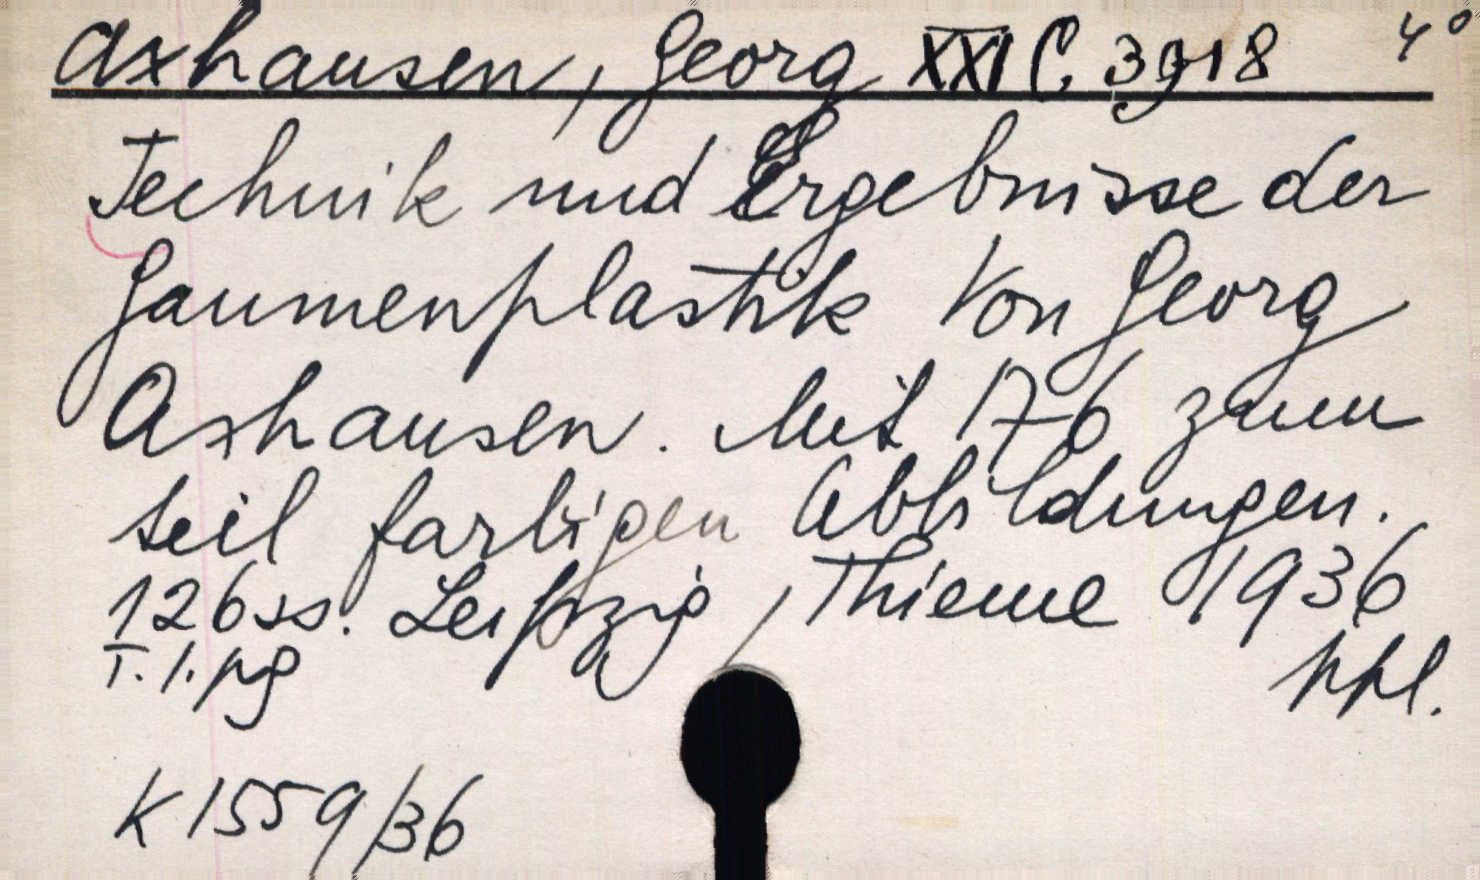 Axhausen, Georg XXI C. 3918 4°
Technik und Ergebnisse der
Gaumenplastik Von Georg
Axhausen. Mit 176 zum
teil farbigen Abbildungen.
126 ss. Leipzig, Thieme 1936
T. 1. pg ppl.
K 1559/36